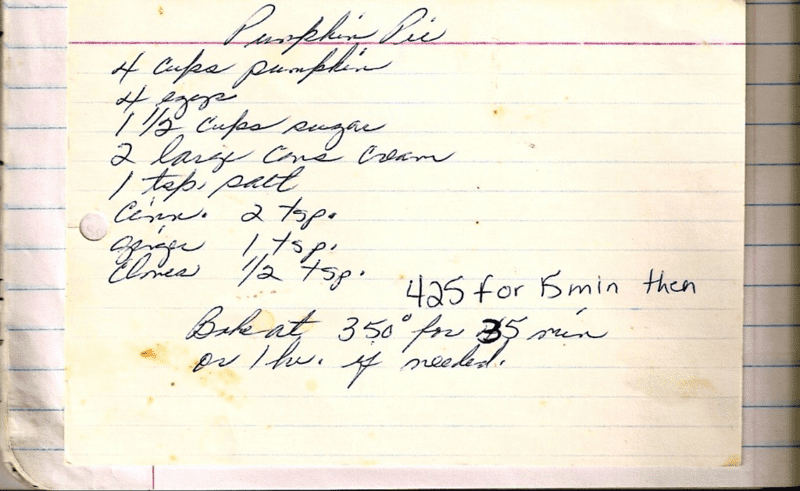 Pumpkin Pie
4 cups pumpkin
4 eggs
1 1/2 cups sugar
2 large cans cream
1 tsp. salt
Cinn. 2 tsp.
ginger 1 tsp.
Cloves 1/2 tsp.
425 for 15 min then
Bake at 350° for 35 min
or 1 hr. if needed.